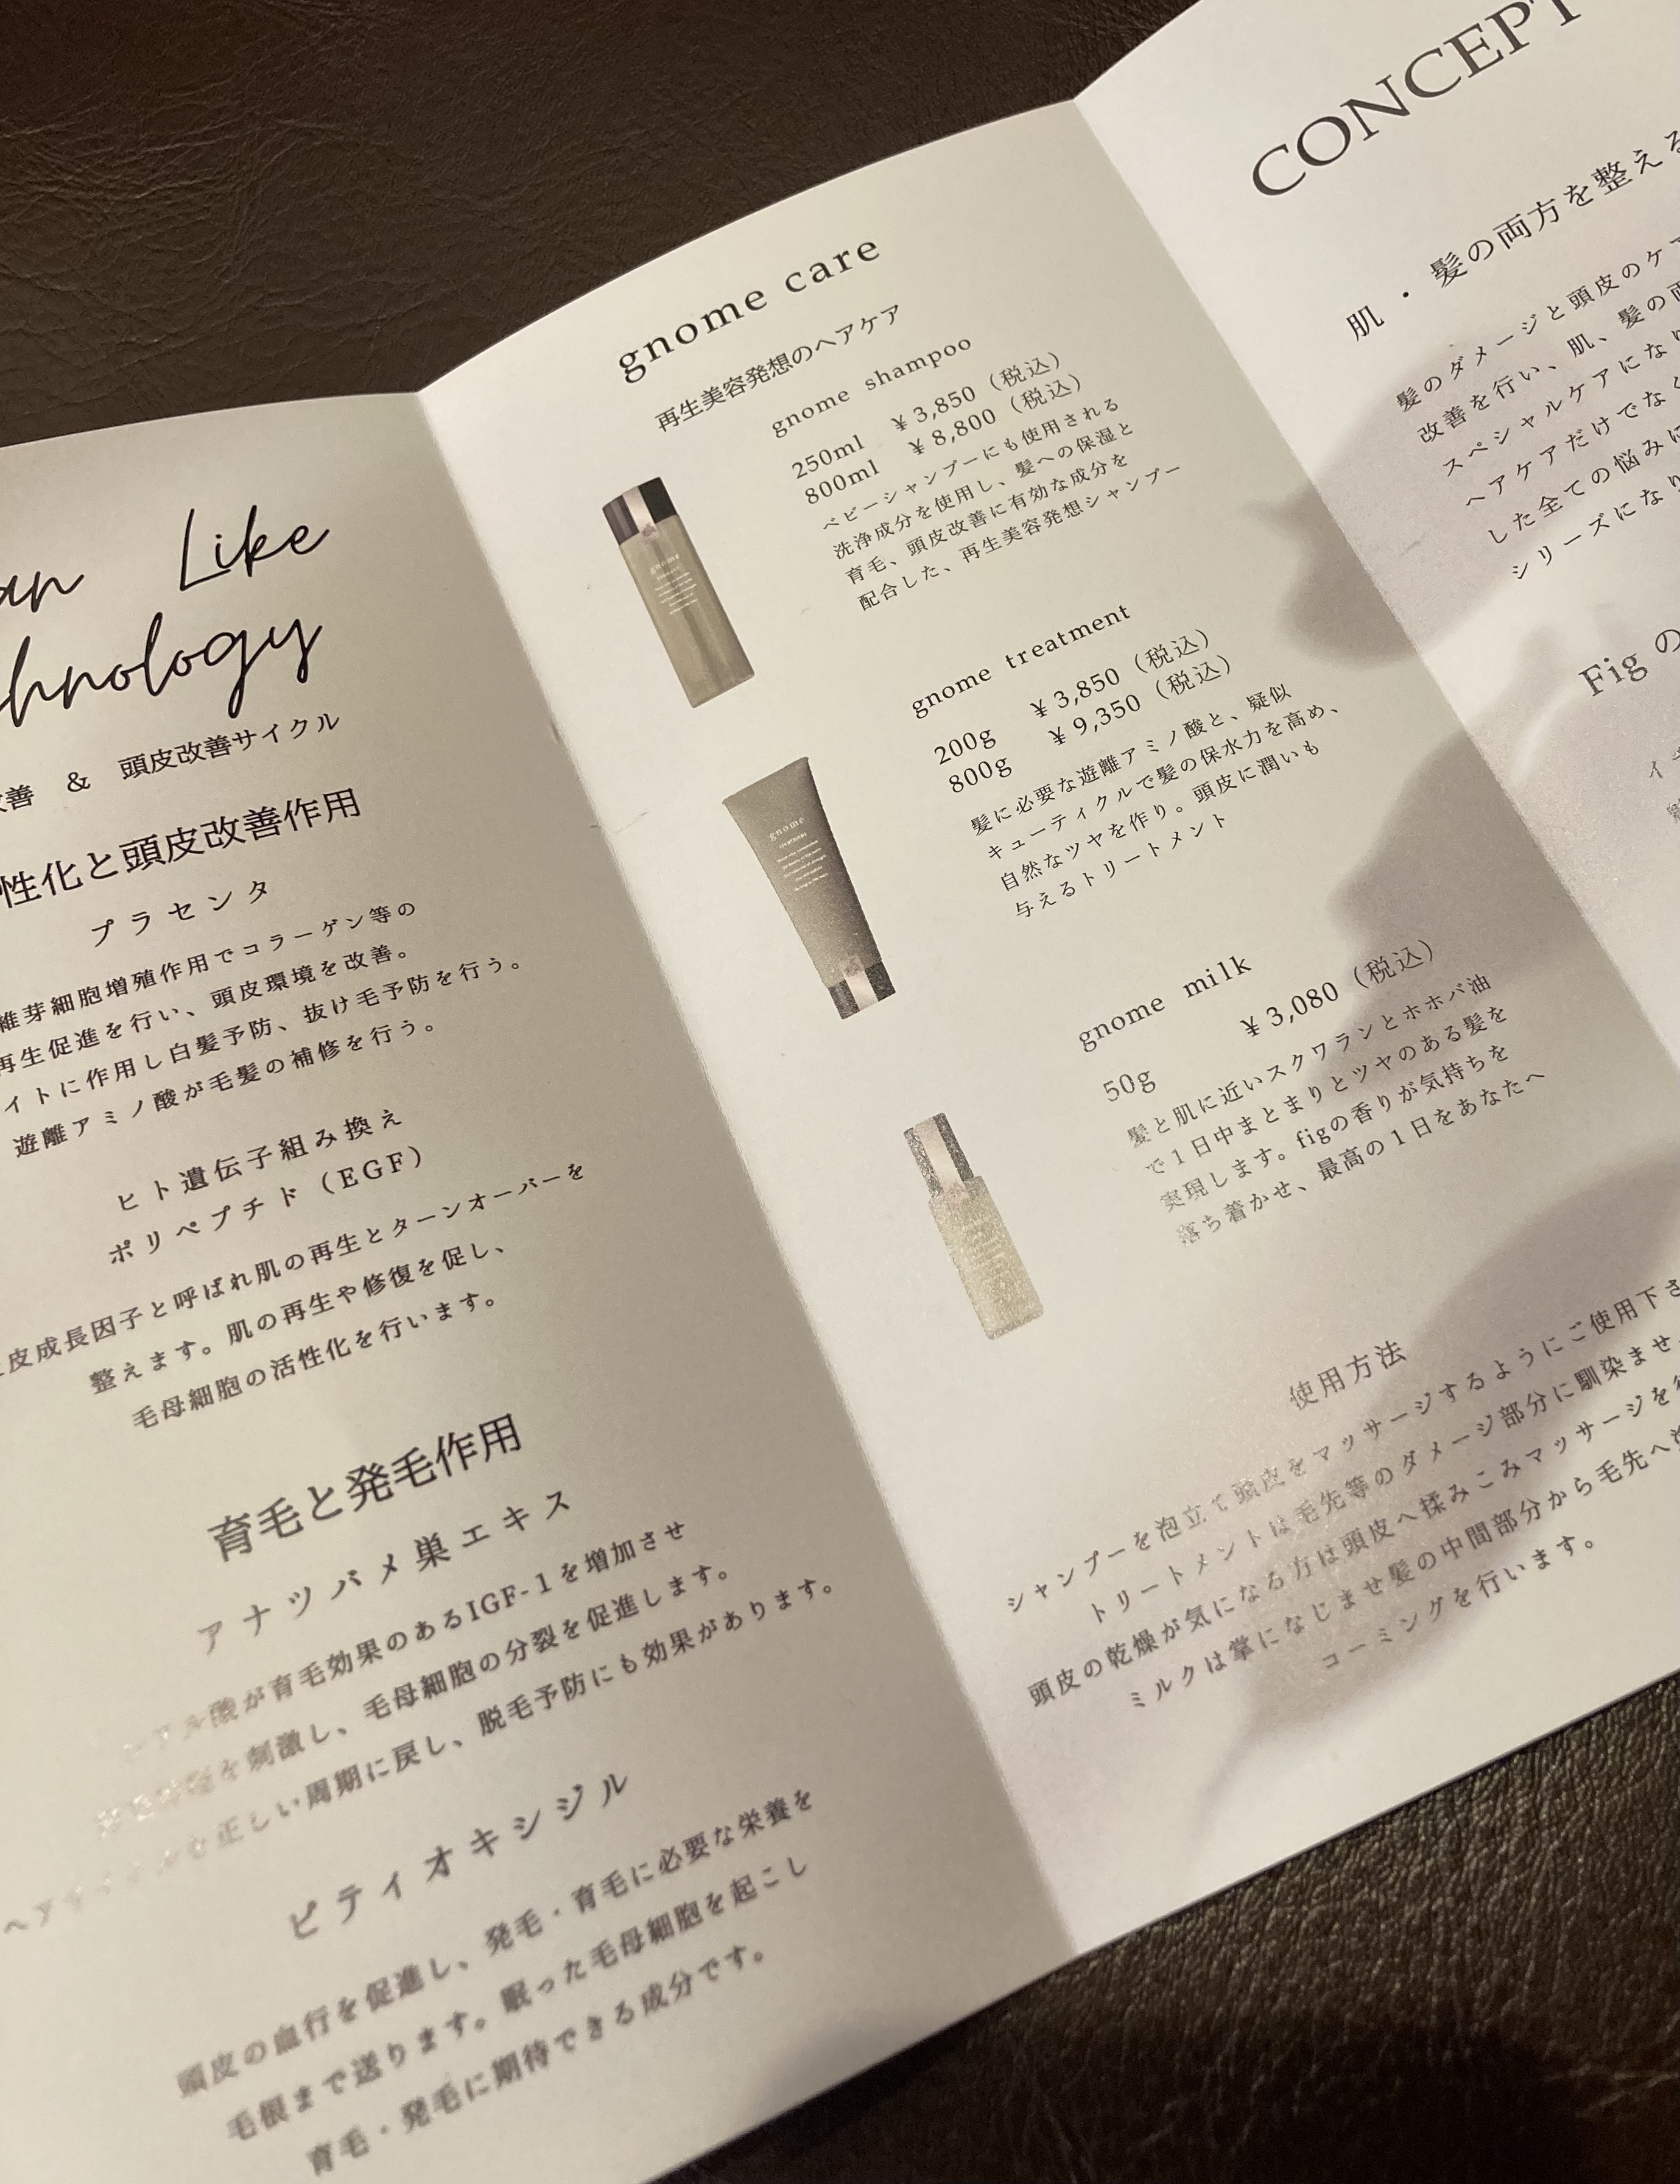 Like
改善 & 頭皮改善サイクル
性化と頭皮改善作用
プラセンタ
維芽細胞増殖作用でコラーゲン等の
再生促進を行い、頭皮環境を改善。
イトに作用し白髪予防、抜け毛予防を行う。
遊離アミノ酸が毛髪の補修を行う。
ヒト遺伝子組み換え
ポリペプチド（EGF）
皮成長因子と呼ばれ肌の再生とターンオーバーを
整えます。肌の再生や修復を促し、
毛母細胞の活性化を行います。
育毛と発毛作用
アナツバメ巣エキス
酸が育毛効果のあるIGF-1を増加させ
を刺激し、毛母細胞の分裂を促進します。
正しい周期に戻し、脱毛予防にも効果があります。
ピディオキシジル
頭皮の血行を促進し、発毛・育毛に必要な栄養を
毛根まで送ります。眠った毛母細胞を起こし
育毛・発毛に期待できる成分です。
gnome care
再生美容発想のヘアケア
gnome shampoo
250ml ¥3,850（税込）
800ml ¥8,800（税込）
ベビーシャンプーにも使用される
洗浄成分を使用し、髪への保湿と
育毛、頭皮改善に有効な成分を
配合した、再生美容発想シャンプー
gnome
gnome treatment
200g ¥3,850（税込）
800g ¥9,350（税込）
髪に必要な遊離アミノ酸と、疑似
キューティクルで髪の保水力を高め、
自然なツヤを作り。頭皮に潤いも
与えるトリートメント
gnome
treatment
gnome milk
50g ¥3,080（税込）
髪と肌に近いスクワランとホホバ油
で1日中まとまりとツヤのある髪を
実現します。figの香りが気持ちを
落ち着かせ、最高の1日をあなたへ
使用方法
シャンプーを泡立て頭皮をマッサージするようにご使用下さ
トリートメントは毛先等のダメージ部分に馴染ませ
頭皮の乾燥が気になる方は頭皮へ揉みこみマッサージを
ミルクは掌になじませ髪の中間部分から毛先へ
コーミングを行います。
CONCEPT
肌・髪の両方を整える
髪のダメージと頭皮のケア
改善を行い、肌、髪の両
スペシャルケアになり
ヘアケアだけでなく
した全ての悩みに
シリーズになり
Fig の